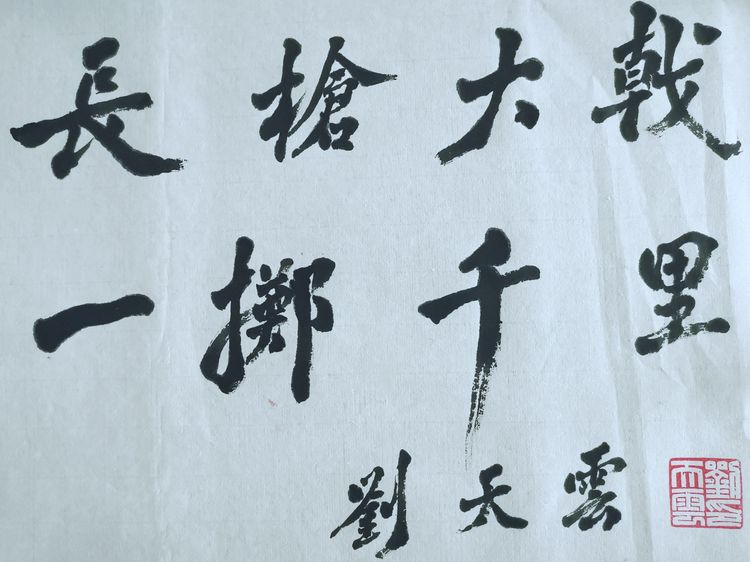 長槍大戟
一擲千里
劉天雲
劉天雲印